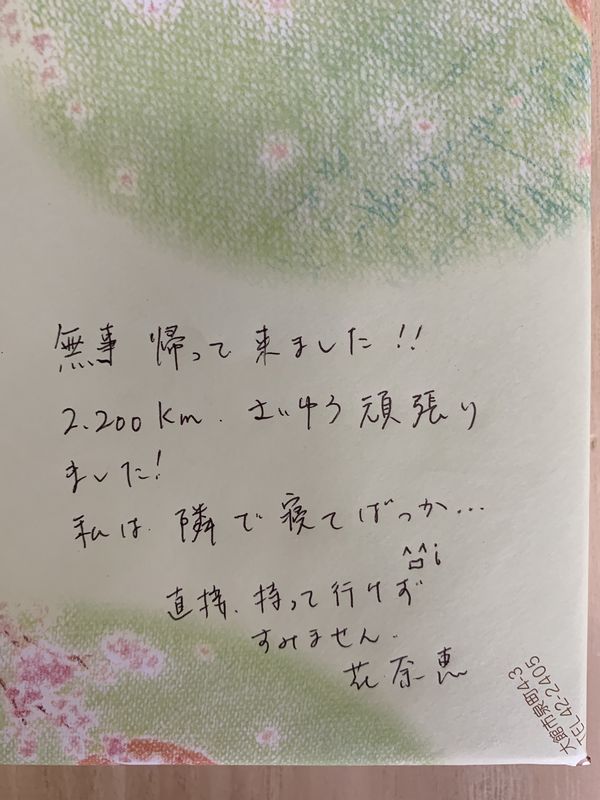 無事 帰って来ました!!
2.200km. さいゆう頑張り
ました!
私は、隣で寝てばっか...
^ロ^;
直接、持って行けず
すみません.
花奈恵
大館市泉町4-3
TEL 42-2405